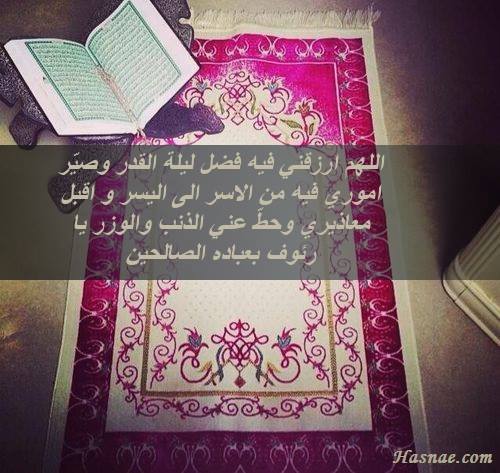 اللهم ارزقني فيه فضل ليلة القدر وصيّر
اموري فيه من الاسر الى اليسر و اقبل
معاذيري وحطّ عني الذنب والوزر يا
رئوف بعباده الصالحين
Hasnae.com